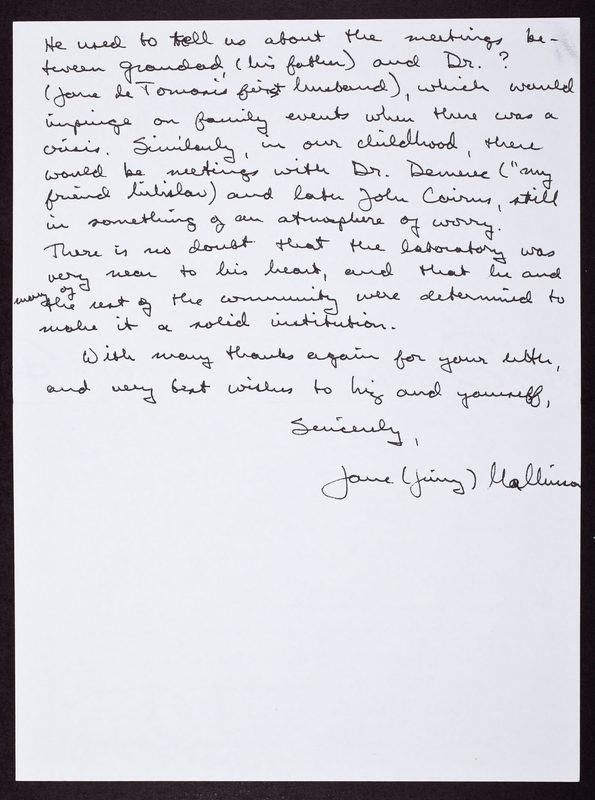 He used to tell us about the meetings be-
tween grandad, (his father) and Dr. ?
(Jane de Tomasi's first husband), which would
impinge on family events when there was a
crisis. Similarly, in our childhood, there
would be meetings with Dr. Demerec ("my
friend Milislav) and later John Cairns, still
in something of an atmosphere of worry.
There is no doubt that the laboratory was
very near to his heart, and that he and
many of the rest of the community were determined to
make it a solid institution.
With many thanks again for your letter,
and very best wishes to Liz and yourself,
Sincerely,
Jane (Jinny) Mallinson